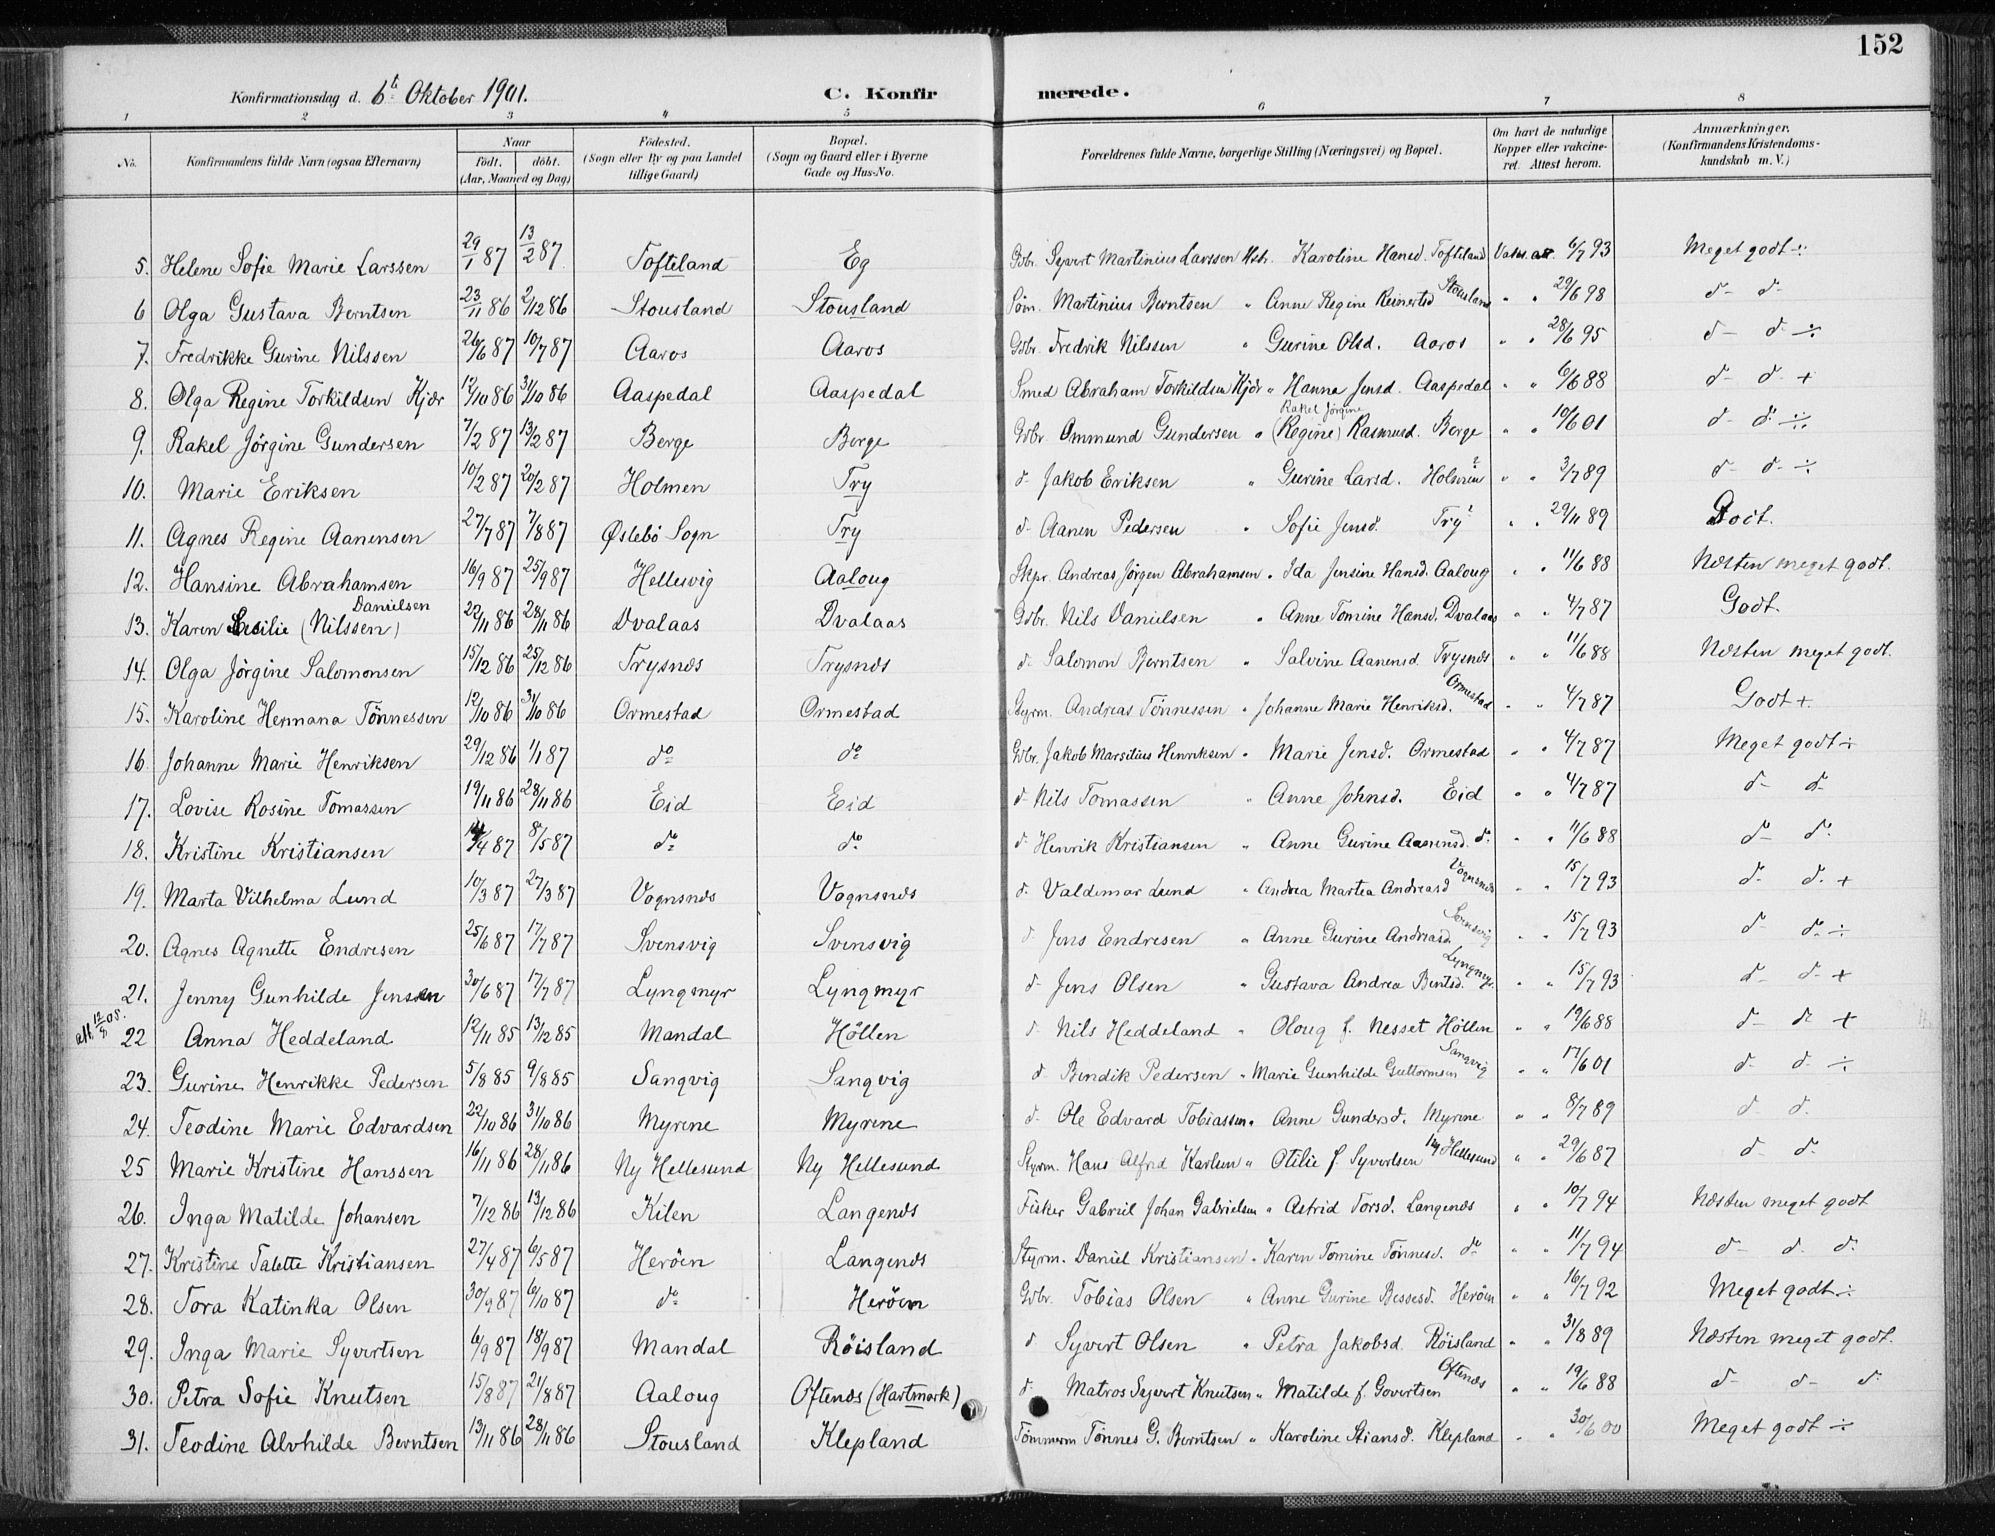 152
Konfirmationsdag d. 6te Oktober 1901. C. Konfirmerede.
1 2 3 4 5 6 7 8
No. Konfirmandens fulde Navn (ogsaa Efternavn) Naar födt. döbt. (Aar, Maaned og Dag) Födested. (Sogn eller By og paa Landet tillige Gaard) Bopæl. (Sogn og Gaard eller i Byerne Gade og Hus-No. Forældrenes fulde Navne, borgerlige Stilling (Næringsvei) og Bopæl. Om havt de naturlige Kopper eller vakcineret. Attest herom. Anmærkninger. (Konfirmandens Kristendomskundskab m. V.)
5. Helene Sofie Marie Larssen 29/1 87 13/2 87. Tofteland Eg Gbr. Syvert Martinius Larssen Hstr. Karoline Hansd. Tofteland Vaks. att. 6/7 93 Meget godt ÷
6 Olga Gustava Berntsen 23/11 86 2/12 86 Stousland Stousland Søm. Martinius Berntsen " Anne Regine Reinertsd Stousland " " 29/6 98 d- d-
7. Fredrikke Gurine Nilssen 26/6 87 10/7 87 Aaros Aaros Gbr. Fredrik Nilssen " Gurine Olsd. Aaros " " 28/6 95 d- d- ÷
8. Olga Regine Torkildsen Kjær 17/10 86 31/10 86 Aaspedal Aaspedal Smed Abraham Torkildsen Kjær " Hanna Jensd. Aaspedal " " 6/6 88 d- d- +
9. Rakel Jörgine Gundersen 7/2 87 13/2 87 Berge Berge Gbr. Ommund Gundersen " Rakel Jörgine (Regine) Rasmusd. Berge " " 10/6 01 d- d- ÷
10. Marie Eriksen 10/2 87 20/2 87 Holmen Try d- Jakob Eriksen " Gurine Larsd. Holmen " " 3/7 89 d- d- ÷
11. Agnes Regine Aanensen 27/7 87 7/8 87 Øslebö Sogn Try d- Aanen Pedersen " Sofie Jensd. Try " " 29/11 89 Godt.
12. Hansine Abrahamsen 16/9 87 25/9 87 Hellesvig Aaloug Skpr. Andreas Jörgen Abrahamsen " Ida Jensine Hansd. Aaloug " " 11/6 88 Næsten meget godt.
13. Karen Cesilie (Nilssen) Danielsen 22/11 86 28/11 86 Dvalaas Dvalaas Gbr. Nils Danielsen " Anne Tomine Hansd. Dvalaas " " 4/7 87 Godt.
14. Olga Jörgine Salomonsen 15/12 86 25/12 86 Trysnæs Trysnæs d- Salomon Berntsen " Salvine Aanensd. Trysnæs " " 11/6 88 Næsten meget godt.
15. Karoline Hermana Tönnessen 12/10 86 31/10 86 Ormestad Ormestad Styrm. Andreas Tönnessen " Johanne Marie Henriksd. Ormestad " " 4/7 87 Godt +.
16 Johanne Marie Henriksen 29/12 86 1/1 87 do do Gbr. Jakob Marsilius Henriksen " Marie Jensd. Ormestad " " 4/7 87 Meget godt ÷
17. Lovise Rosine Tomassen 19/11 86 28/11 86 Eid Eid d- Nils Tomassen " Anne Johnsd. Eid " " 4/7 87 d- d-
18. Kristine Kristiansen 14/4 87 8/5 87 do do d- Henrik Kristiansen " Anne Gurine Aanensd. do " " 11/6 88 d- do
19. Marta Vilhelma Lund 10/3 87 27/3 87 Vognsnæs Vognsnæs d- Valdemar Lund " Andrea Martea Andreasd Vognsnæs " " 15/7 93 d- d. +
20. Agnes Agnette Endresen 25/6 87 17/7 87 Svensvig Svensvig d- Jens Endresen " Anne Gurine Andreasd. Svensvig " " 15/7 93 d- d. ÷
21. Jenny Gunhilde Jenssen 30/6 87 17/7 87 Lyngmyr Lyngmyr d- Jens Olsen " Gustava Andrea Berntsd. Lyngmyr. " " 15/7 93 d- d- +
att. 12/8 05. 22 Anna Heddeland 12/11 85 13/12 85 Mandal Höllen d- Nils Heddeland " Oloug f. Nesset Höllen " " 19/6 88 d- d- +
23. Gurine Henrikke Pedersen 5/8 85 9/8 85 Sangvig Sangvig d- Bendik Pedersen " Marie Gunhilde Guttormsen Sangvig " " 17/6 01 d- d- ÷
24. Teodine Marie Edvardsen 22/10 86 31/10 86 Myrene Myrene d- Ole Edvard Tobiassen " Anne Gundersd. Myrene " " 8/7 89 d- d.
25 Marie Kristine Hanssen 16/11 86 28/11 86 Ny Hellesund Ny Hellesund Styrm. Hans Alfred Karlsen " Otilie f. Syvertsen Ny Hellesund " " 29/6 87 d- d-
26. Inga Matilde Johansen 7/12 86 13/12 86 Kilen Langenæs Fisker Gabriel Johan Gabrielsen " Astrid Torsd. Langenæs " " 10/7 94 Næsten meget godt
27. Kristine Talette Kristiansen 27/4 87 6/5 87 Heröen Langenæs Styrm. Daniel Kristiansen " Karen Tomine Tönnesd. do " " 11/7 94 d- d- d-
28. Tora Katinka Olsen 30/9 87 6/10 87 do Heröen Gbr. Tobias Olsen " Anne Gurine Bessesd. Heröen " " 16/7 92 Meget godt ÷
29. Inga Marie Syvertsen 6/9 87 18/9 87 Mandal Röisland d Syvert Olsen " Petra Jakobsd. Röisland " " 31/8 89 Næsten meget godt.
30. Petra Sofie Knutsen 15/8 87 21/8 87 Aaloug Oftenæs (Hartmark) d. Matros Syvert Knutsen " Matilde f. Govertsen Oftenæs " " 19/6 88 d- d- d-
31. Teodine Alvhilde Berntsen 13/11 86 28/11 86 Stousland Klepland Tömmerm Tönnes G. Berntsen " Karoline Stiansd. Klepland " " 30/6 00 Meget godt ÷